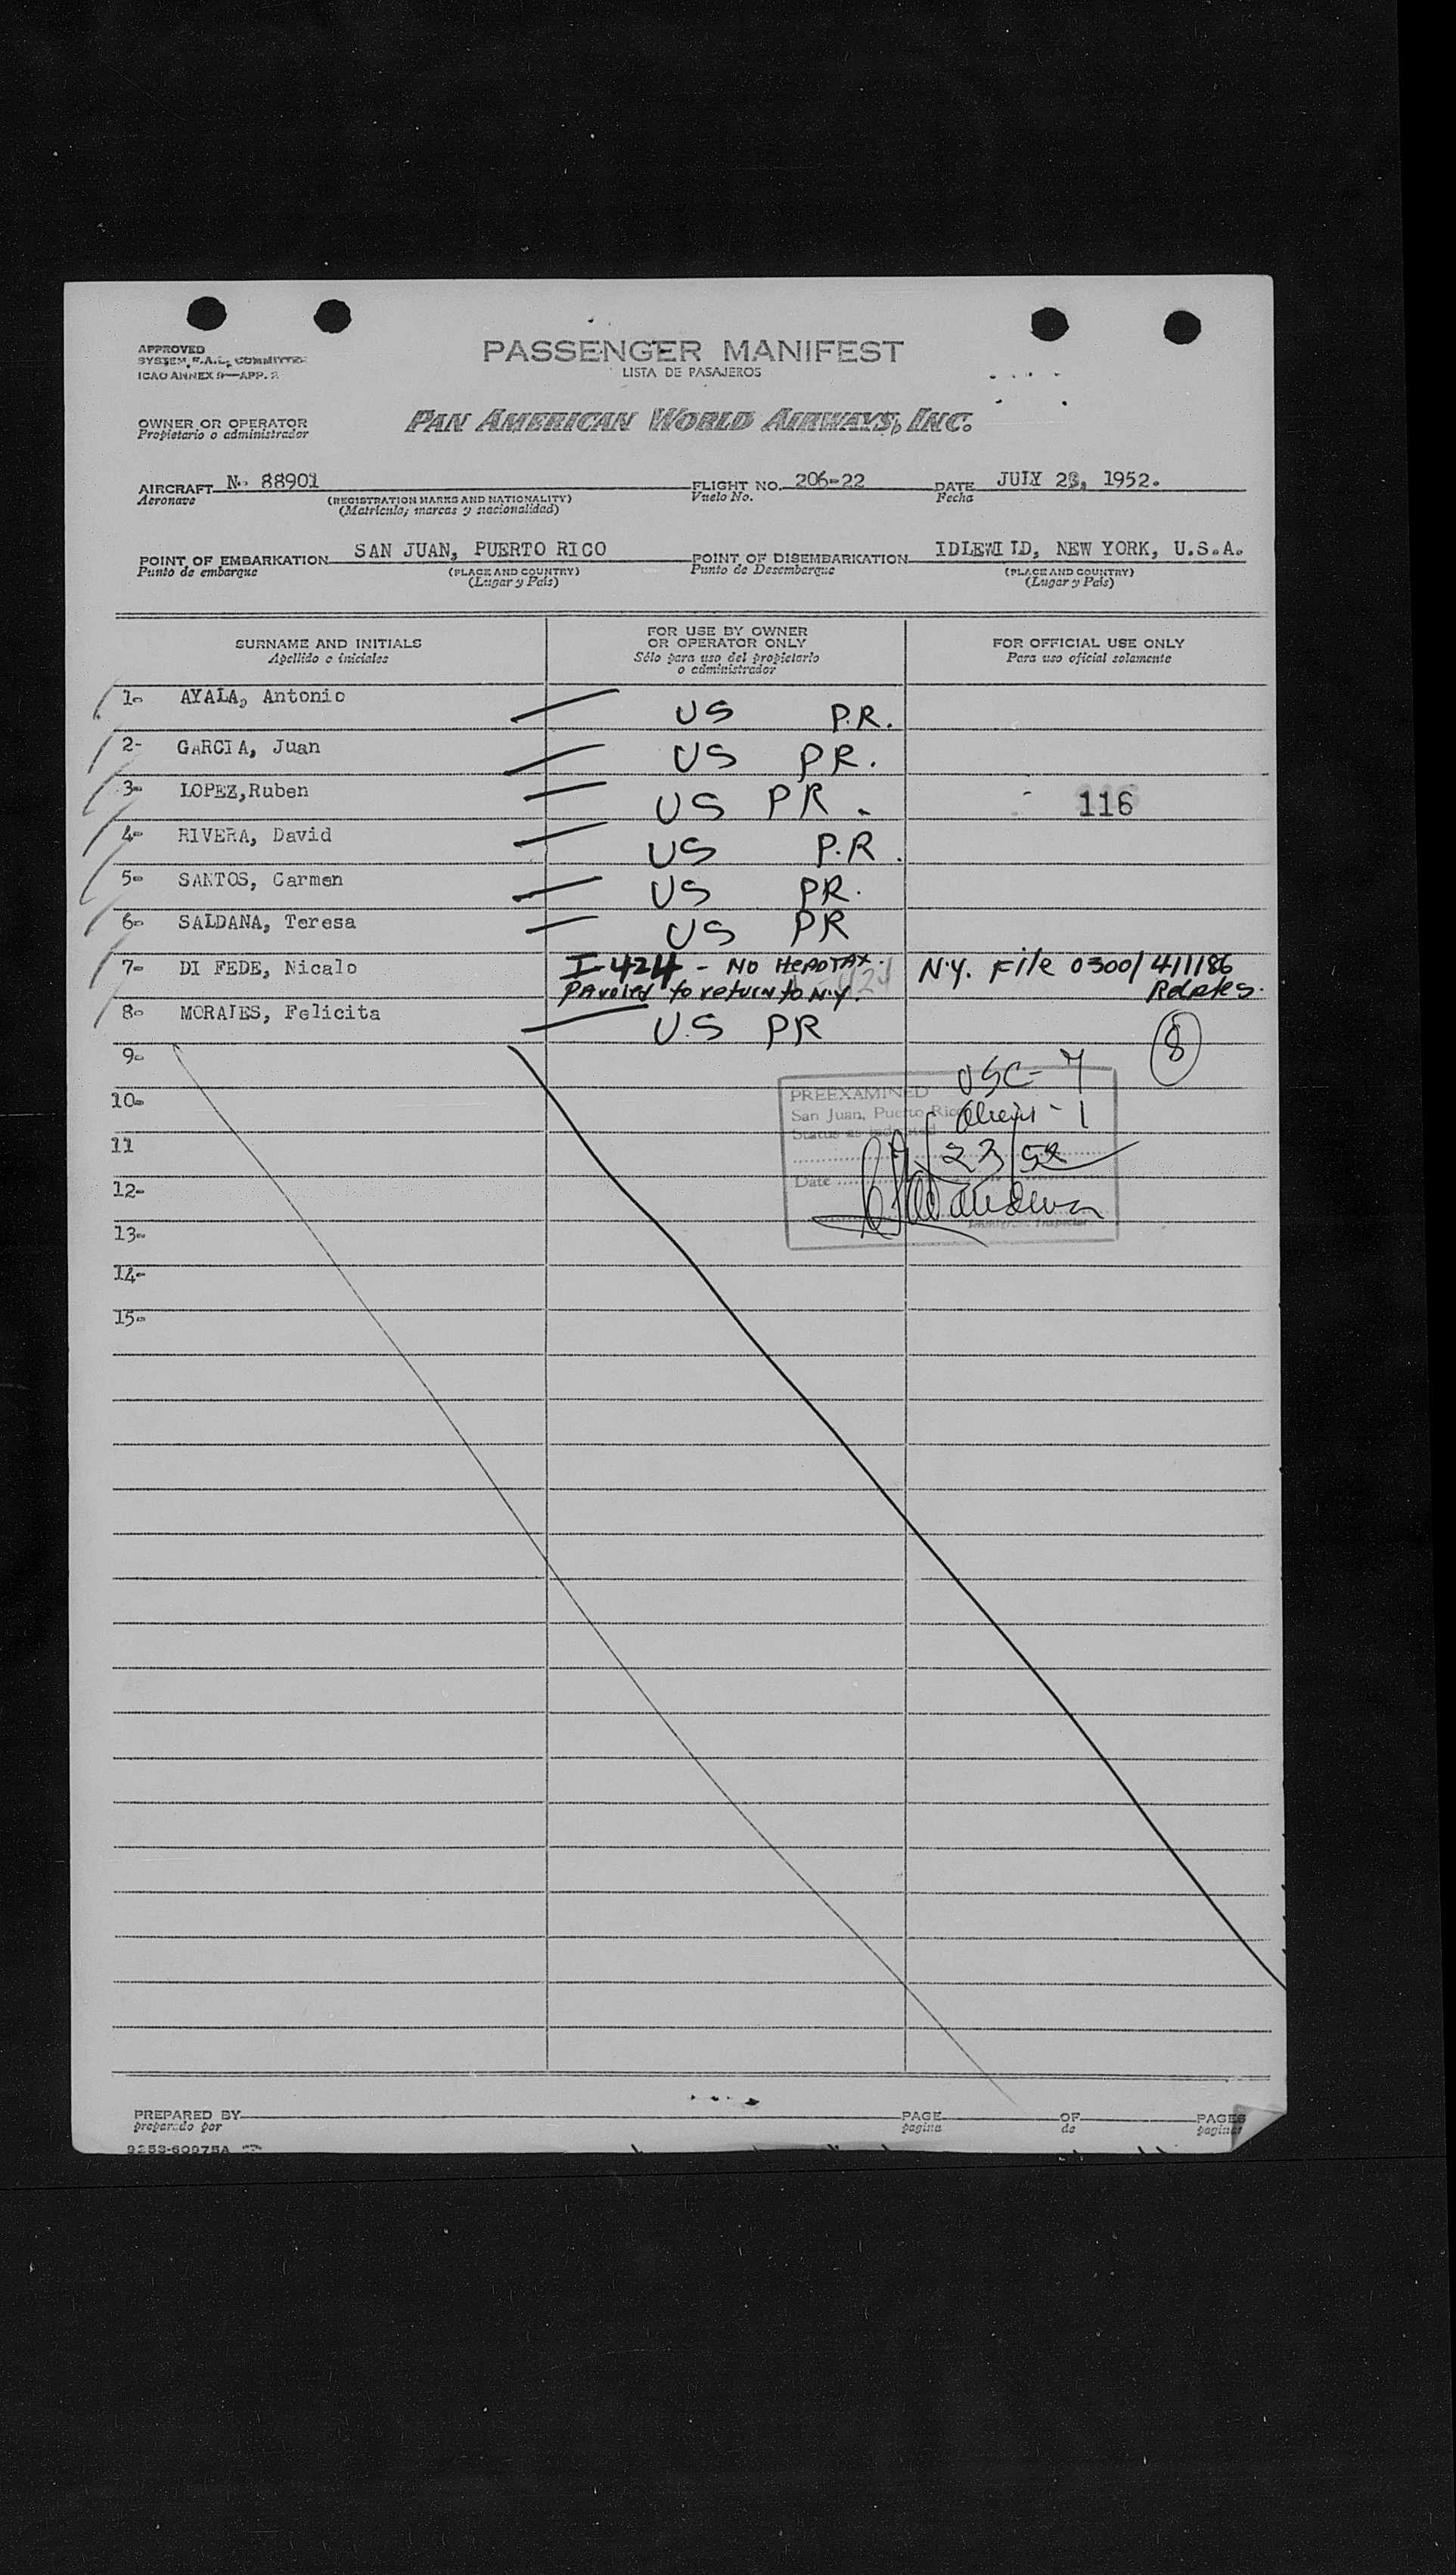 APPROVED
SYSTEM F.A.L. COMMITTEE
ICAO ANNEX 9—APP. 2
PASSENGER MANIFEST
LISTA DE PASAJEROS
OWNER OR OPERATOR
Propietario o administrador
PAN AMERICAN WORLD AIRWAYS, INC.
AIRCRAFT N. 88901 FLIGHT NO. 206-22 DATE JULY 23, 1952.
Aeronave (REGISTRATION MARKS AND NATIONALITY) Vuelo No. Fecha
(Matrícula, marcas y nacionalidad)
POINT OF EMBARKATION SAN JUAN, PUERTO RICO POINT OF DISEMBARKATION IDLEWILD, NEW YORK, U.S.A.
Punto de embarque (PLACE AND COUNTRY) Punto de Desembarque (PLACE AND COUNTRY)
(Lugar y País) (Lugar y País)
SURNAME AND INITIALS
Apellido e iniciales
FOR USE BY OWNER
OR OPERATOR ONLY
Sólo para uso del propietario
o administrador
FOR OFFICIAL USE ONLY
Para uso oficial solamente
1- AYALA, Antonio US P.R.
2- GARCIA, Juan US PR.
3- LOPEZ,Ruben US PR. 116
4- RIVERA, David US P.R.
5- SANTOS, Carmen US PR.
6- SALDANA, Teresa US PR
7- DI FEDE, Nicalo I-424 - NO HEADTAX. N.Y. File 0300/411186
Paroled to return to N.Y. Relates.
8- MORALES, Felicita U.S PR
8
9-
10-
11
12-
13-
14-
15-
USC-7
PREEXAMINED
San Juan, Puerto Rico Alien - 1
Status as indicated
7/23/52
Date
Immigrant Inspector
PREPARED BY PAGE OF PAGES
preparado por pagina de paginas
9253-60975A